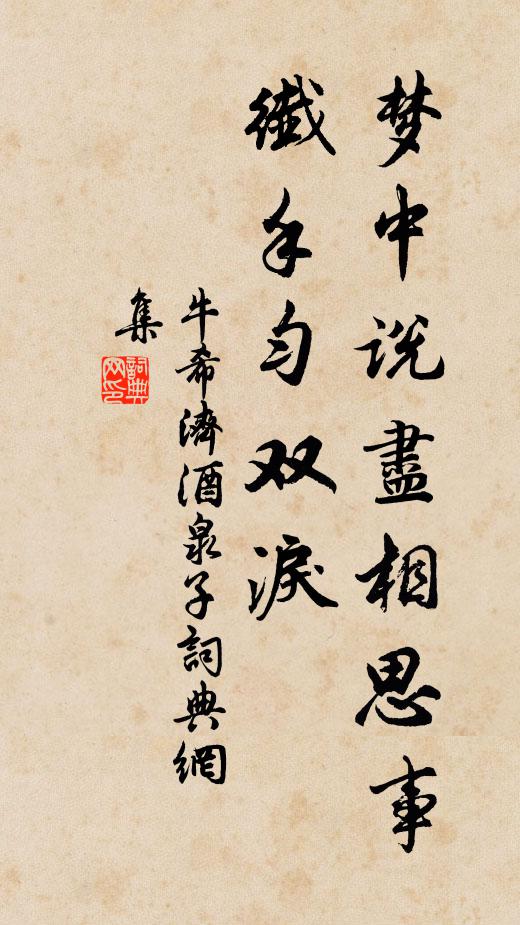 梦中说盡相思事
纖手匀双淚
牛希濟酒泉子詞典網
集
詞典网印